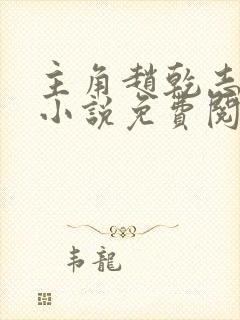 主角趙乾志
小說免費閱
韦龍